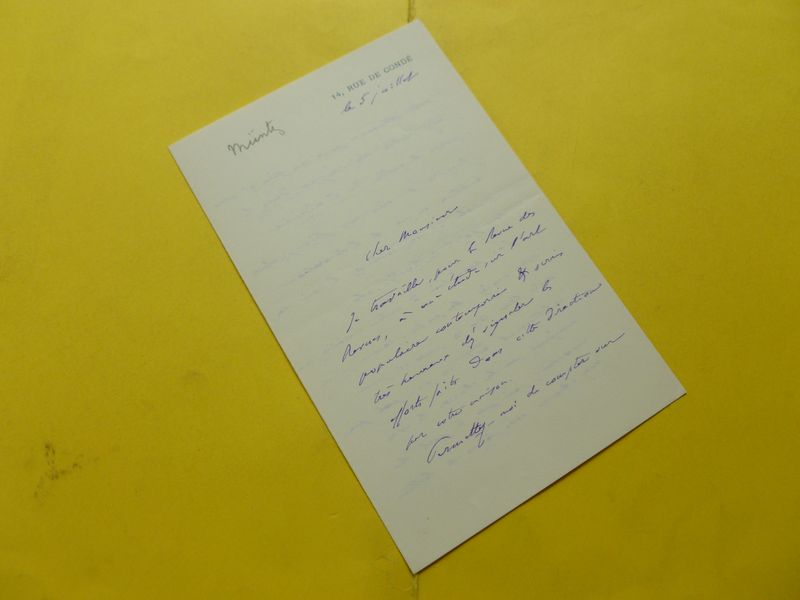 14, RUE DE CONDÉ
le 5 juillet
Müntz
Cher Monsieur
Je travaille, pour la Revue des
Revues, à une étude sur l'art
populaire contemporain & serais
très heureux d'y signaler les
efforts faits dans cette direction
par votre maison.
Permettez-moi de compter sur